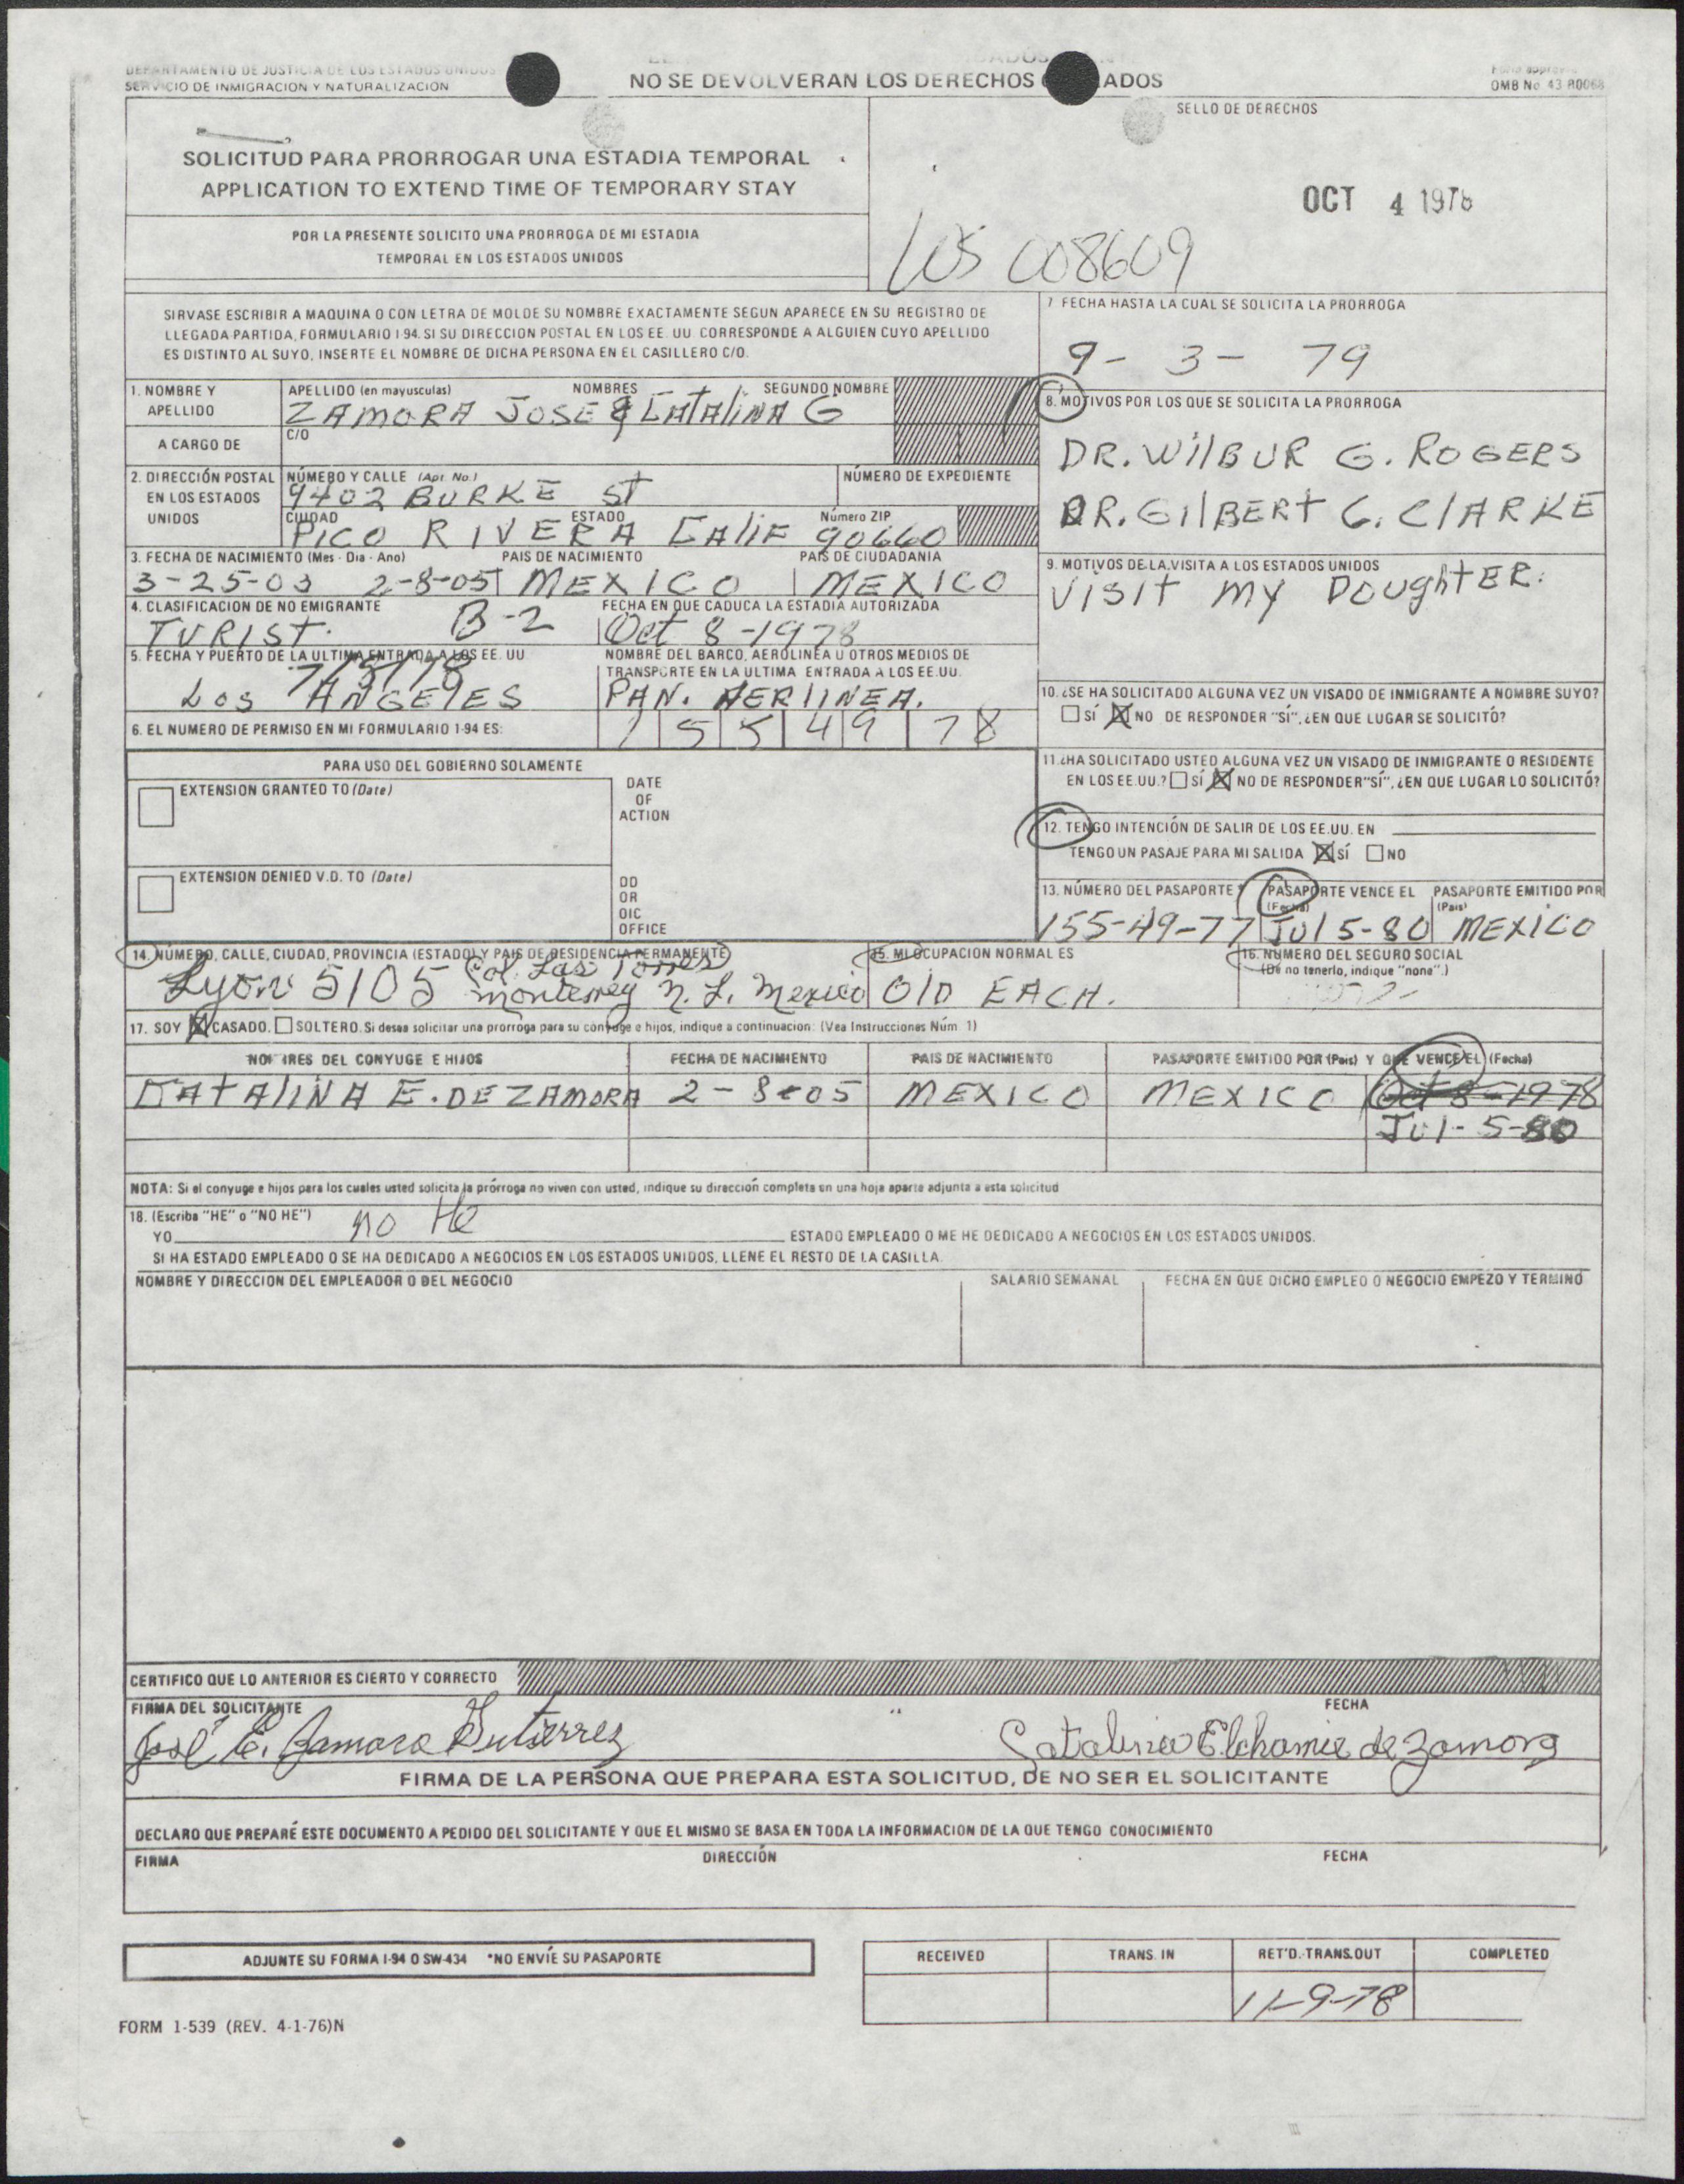 DEPARTAMENTO DE JUSTICIA DE LOS ESTADOS UNIDOS
SERVICIO DE INMIGRACION Y NATURALIZACION
NO SE DEVOLVERAN LOS DERECHOS ADOS
OMB No 43 R0068
SELLO DE DERECHOS
SOLICITUD PARA PRORROGAR UNA ESTADIA TEMPORAL
APPLICATION TO EXTEND TIME OF TEMPORARY STAY
OCT 4 1978
POR LA PRESENTE SOLICITO UNA PRORROGA DE MI ESTADIA
TEMPORAL EN LOS ESTADOS UNIDOS
008609
SIRVASE ESCRIBIR A MAQUINA O CON LETRA DE MOLDE SU NOMBRE EXACTAMENTE SEGUN APARECE EN SU REGISTRO DE
LLEGADA PARTIDA, FORMULARIO I 94. SI SU DIRECCION POSTAL EN LOS EE. UU. CORRESPONDE A ALGUIEN CUYO APELLIDO
ES DISTINTO AL SUYO, INSERTE EL NOMBRE DE DICHA PERSONA EN EL CASILLERO C/O.
7. FECHA HASTA LA CUAL SE SOLICITA LA PRORROGA
9- 3- 79
1. NOMBRE Y APELLIDO
APELLIDO (en mayusculas) NOMBRES SEGUNDO NOMBRE
ZAMORA JOSE & CATALINA G
A CARGO DE
C/O
8. MOTIVOS POR LOS QUE SE SOLICITA LA PRORROGA
DR. WILBUR G. ROGERS
DR. GILBERT G. CLARKE
2. DIRECCIÓN POSTAL EN LOS ESTADOS UNIDOS
NÚMERO Y CALLE (Apt. No.) NÚMERO DE EXPEDIENTE
9402 BURKE ST
CIUDAD ESTADO Número ZIP
PICO RIVERA CALIF 90660
3. FECHA DE NACIMIENTO (Mes - Dia - Ano) PAIS DE NACIMIENTO PAIS DE CIUDADANIA
3-25-03 2-8-05 MEXICO MEXICO
9. MOTIVOS DE LA VISITA A LOS ESTADOS UNIDOS
VISIT MY DOUGHTER.
4. CLASIFICACION DE NO EMIGRANTE FECHA EN QUE CADUCA LA ESTADIA AUTORIZADA
TURIST. B-2 Oct 8-1978
5. FECHA Y PUERTO DE LA ULTIMA ENTRADA A LOS EE. UU
7/5/78
LOS ANGELES
NOMBRE DEL BARCO, AEROLINEA U OTROS MEDIOS DE
TRANSPORTE EN LA ULTIMA ENTRADA A LOS EE.UU.
PAN. AERLINEA.
6. EL NUMERO DE PERMISO EN MI FORMULARIO 1-94 ES:
1 5 5 4 9 7 8
10. ¿SE HA SOLICITADO ALGUNA VEZ UN VISADO DE INMIGRANTE A NOMBRE SUYO?
SÍ X NO DE RESPONDER "SÍ", ¿EN QUE LUGAR SE SOLICITÓ?
11. ¿HA SOLICITADO USTED ALGUNA VEZ UN VISADO DE INMIGRANTE O RESIDENTE
EN LOS EE.UU.? SÍ X NO DE RESPONDER "SÍ", ¿EN QUE LUGAR LO SOLICITÓ?
12. TENGO INTENCIÓN DE SALIR DE LOS EE.UU. EN
TENGO UN PASAJE PARA MI SALIDA X SÍ NO
PARA USO DEL GOBIERNO SOLAMENTE
EXTENSION GRANTED TO (Date)
DATE
OF
ACTION
EXTENSION DENIED V.D. TO (Date)
DD
OR
OIC
OFFICE
13. NÚMERO DEL PASAPORTE PASAPORTE VENCE EL (Fecha) PASAPORTE EMITIDO POR (Pais)
155-49-77 JUl 5-80 MEXICO
14. NÚMERO, CALLE, CIUDAD, PROVINCIA (ESTADO) Y PAIS DE RESIDENCIA PERMANENTE
Lyon 5105 Col. Las Torres
Monterrey N. L. Mexico
15. MI OCUPACION NORMAL ES
OlD EACH.
16. NÚMERO DEL SEGURO SOCIAL
(De no tenerlo, indique "none".)
17. SOY X CASADO. SOLTERO. Si desea solicitar una prorroga para su conyuge e hijos, indique a continuacion: (Vea Instrucciones Núm 1)
NOMBRES DEL CONYUGE E HIJOS FECHA DE NACIMIENTO PAIS DE NACIMIENTO PASAPORTE EMITIDO POR (Pais) Y QUE VENCE EL (Fecha)
CATALINA E. DE ZAMORA 2-8-05 MEXICO MEXICO Oct 8-1978
JUl-5-80
NOTA: Si el conyuge e hijos para los cuales usted solicita la prórroga no viven con usted, indique su dirección completa en una hoja aparte adjunta a esta solicitud
18. (Escriba "HE" o "NO HE")
YO no He ESTADO EMPLEADO O ME HE DEDICADO A NEGOCIOS EN LOS ESTADOS UNIDOS.
SI HA ESTADO EMPLEADO O SE HA DEDICADO A NEGOCIOS EN LOS ESTADOS UNIDOS, LLENE EL RESTO DE LA CASILLA.
NOMBRE Y DIRECCION DEL EMPLEADOR O DEL NEGOCIO SALARIO SEMANAL FECHA EN QUE DICHO EMPLEO O NEGOCIO EMPEZO Y TERMINÓ
CERTIFICO QUE LO ANTERIOR ES CIERTO Y CORRECTO
FIRMA DEL SOLICITANTE FECHA
José E. Zamora Gutierrez Catalina Elchamie de Zamora
FIRMA DE LA PERSONA QUE PREPARA ESTA SOLICITUD, DE NO SER EL SOLICITANTE
DECLARO QUE PREPARÉ ESTE DOCUMENTO A PEDIDO DEL SOLICITANTE Y QUE EL MISMO SE BASA EN TODA LA INFORMACION DE LA QUE TENGO CONOCIMIENTO
FIRMA DIRECCIÓN FECHA
ADJUNTE SU FORMA I-94 O SW-434 *NO ENVÍE SU PASAPORTE
RECEIVED TRANS. IN RET'D.-TRANS.OUT COMPLETED
11-9-78
FORM 1-539 (REV. 4-1-76)N